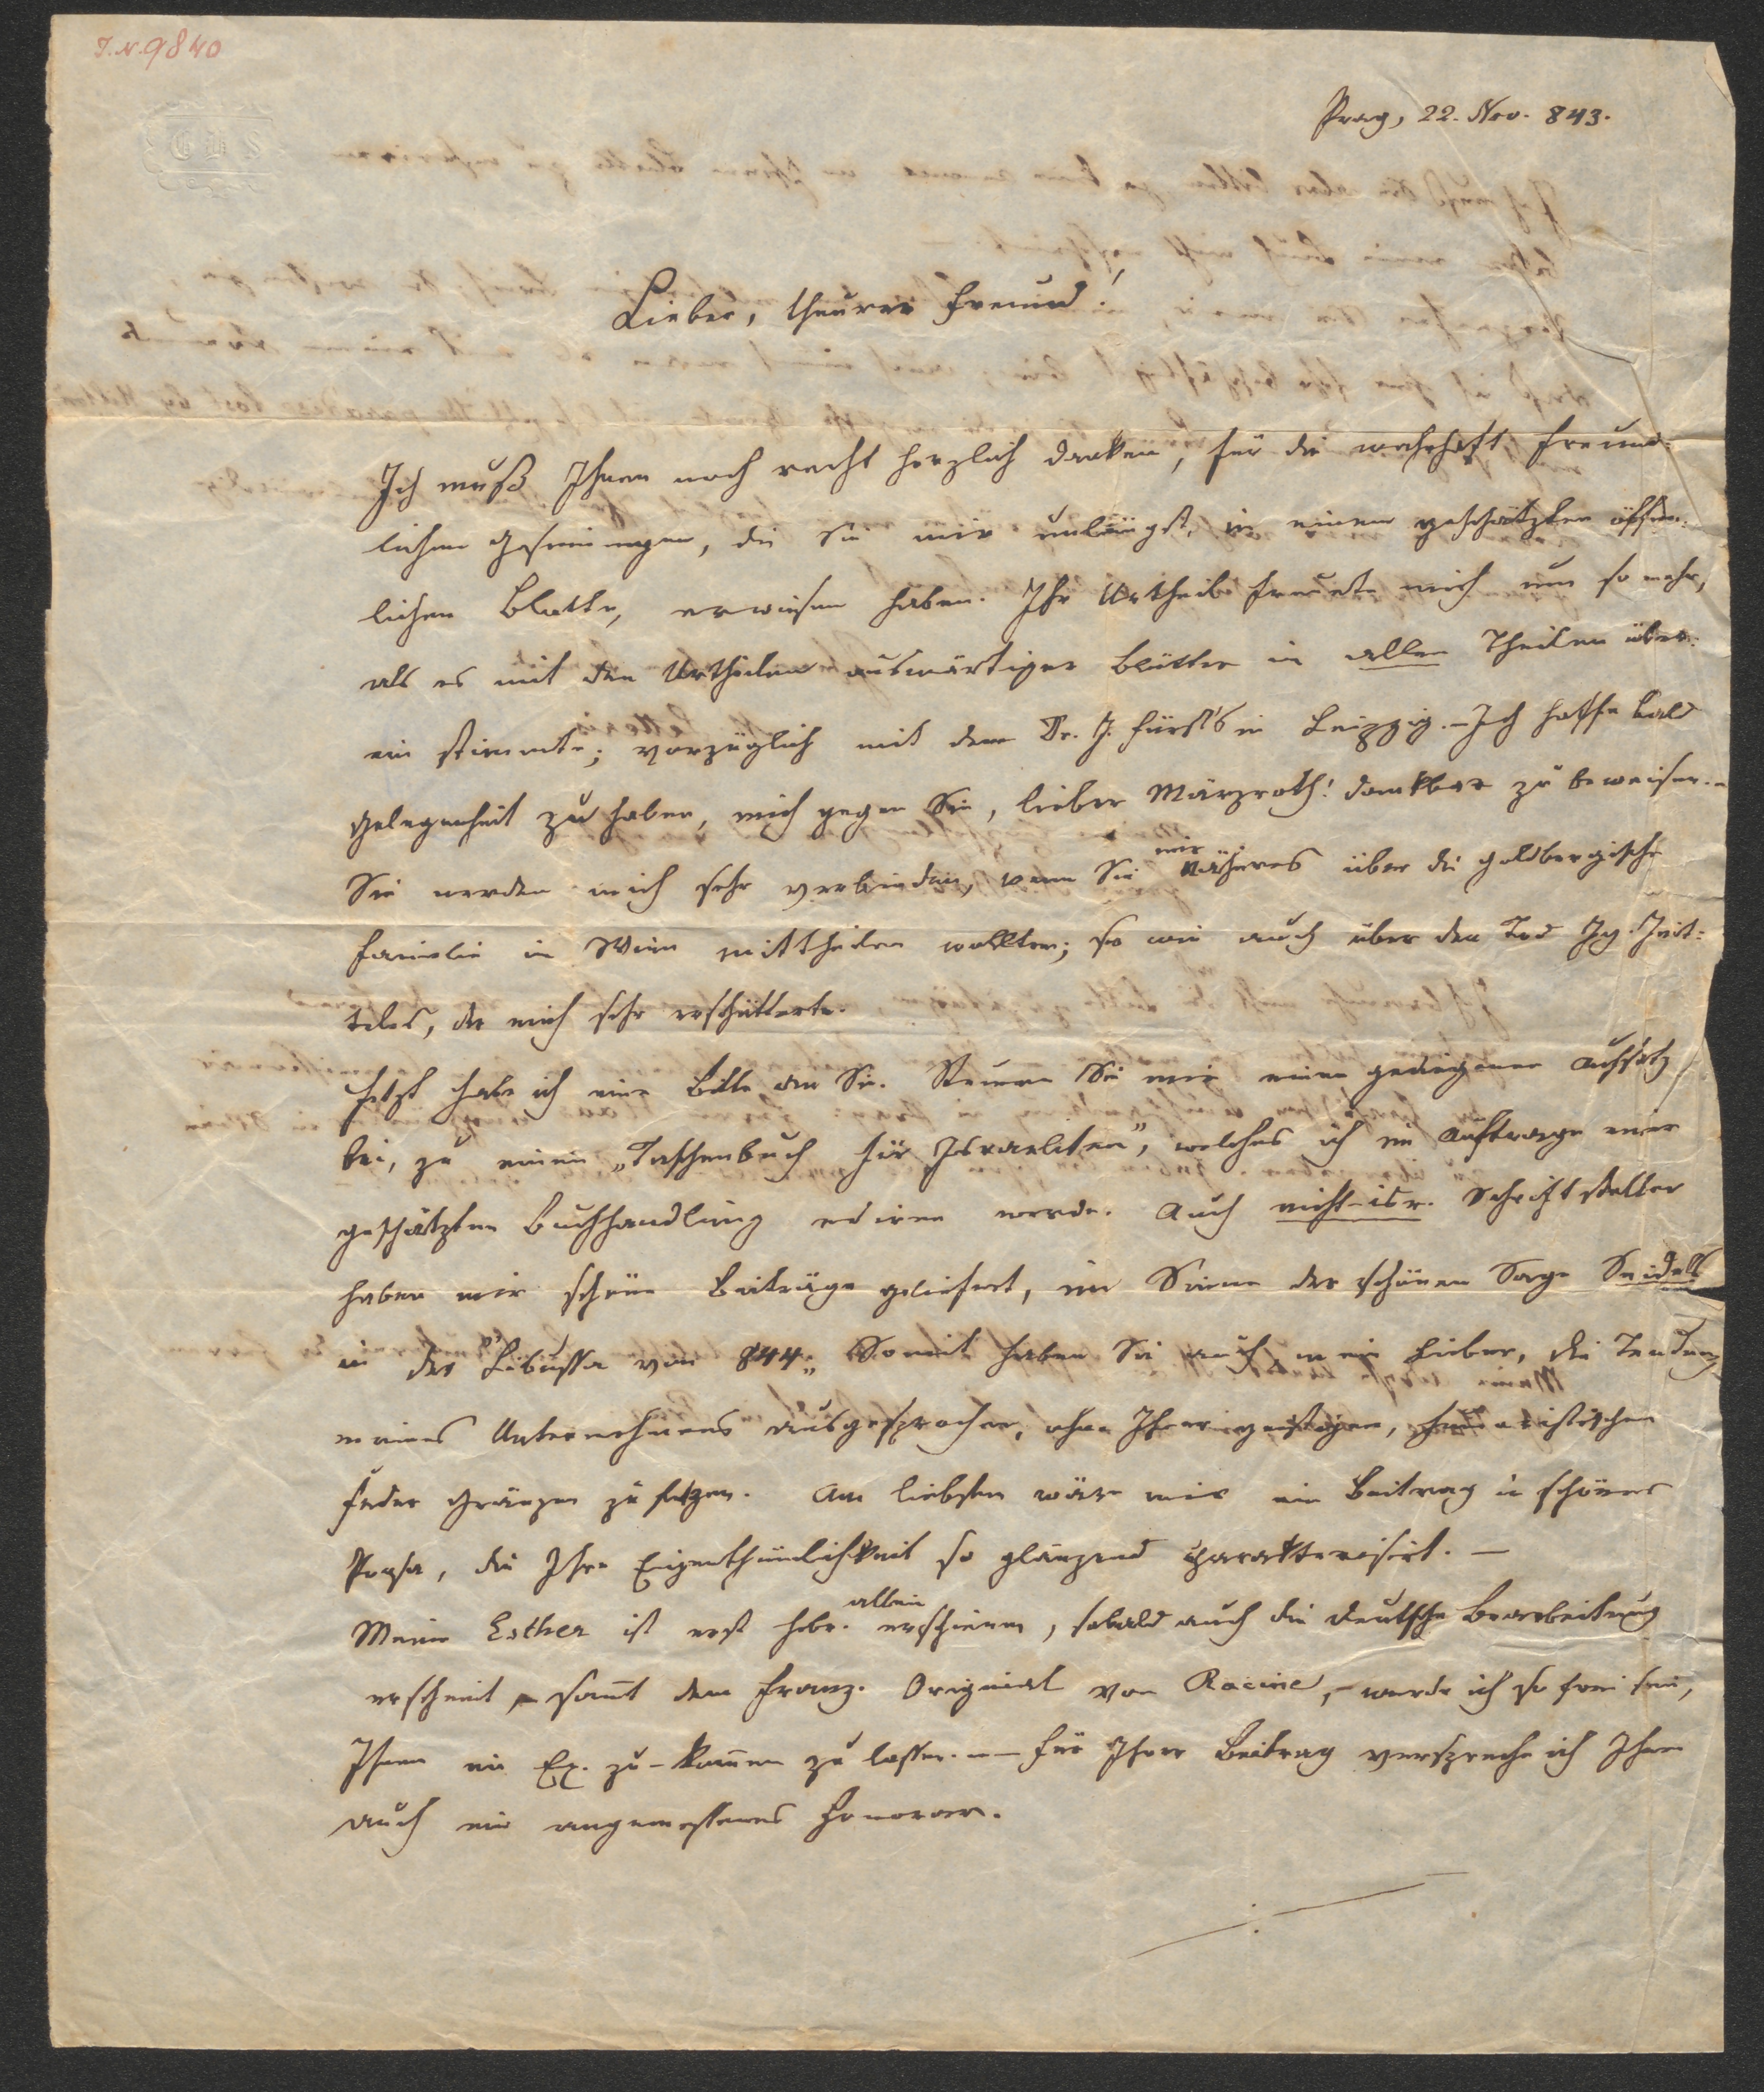 J.N. 9840
Prag, 22. Nov. 843.
Lieber, theurer Freund!
Ich muß Ihnen noch recht herzlich danken, für die wahrhaft freund-
lichen Gesinnungen, die Sie mir unlängst, in einem geschätzten öffent-
lichen Blatte, erwiesen haben. Ihr Urtheil freuete mich um so mehr,
als es mit den Urtheilen auswärtiger Blätter in allen Theilen über-
ein stimmte; vorzüglich mit dem Dr. J. Fürst's in Leipzig. – Ich hoffe bald
Gelegenheit zu haben, mich gegen Sie, lieber Märzroth! dankbar zu beweisen. –
Sie werden mich sehr verbinden, wenn Sie mir Näheres über die Goldbergische
Familie in Wien mittheilen wollten; so wie auch über den Tod Ig. Jeit-
teles, der mich sehr erschütterte.
Jetzt habe ich eine Bitte an Sie. Steuern Sie mir einen gediegenen Aufsatz
bei, zu einem „Taschenbuch für Israeliten", welches ich im Auftrage einer
geschätzten Buchhandlung ediren werde. Auch nicht-isr. Schriftsteller
haben mir schöne Beiträge geliefert, im Sinne der schönen Sage Seidels
in der "Libussa von 844". Somit haben Sie auch, mein Lieber, die Tendenz
meines Unternehmens ausgesprochen, ohne Ihrer geistigen, humoristischen
Feder Gränzen zu setzen. Am liebsten wäre mir ein Beitrag in schöner
Prosa, die Ihre Eigenthümlichkeit so glänzend charakterisirt. –
Meine Esther ist erst hebr. allein erschienen, sobald auch die deutsche Bearbeitung
erscheint, – samt dem franz. Original von Racine, – werde ich so frei sein,
Ihnen ein Ex. zu-komen zu lassen. – Für Ihren Beitrag verspreche ich Ihnen
auch ein angemessenes Honorar.